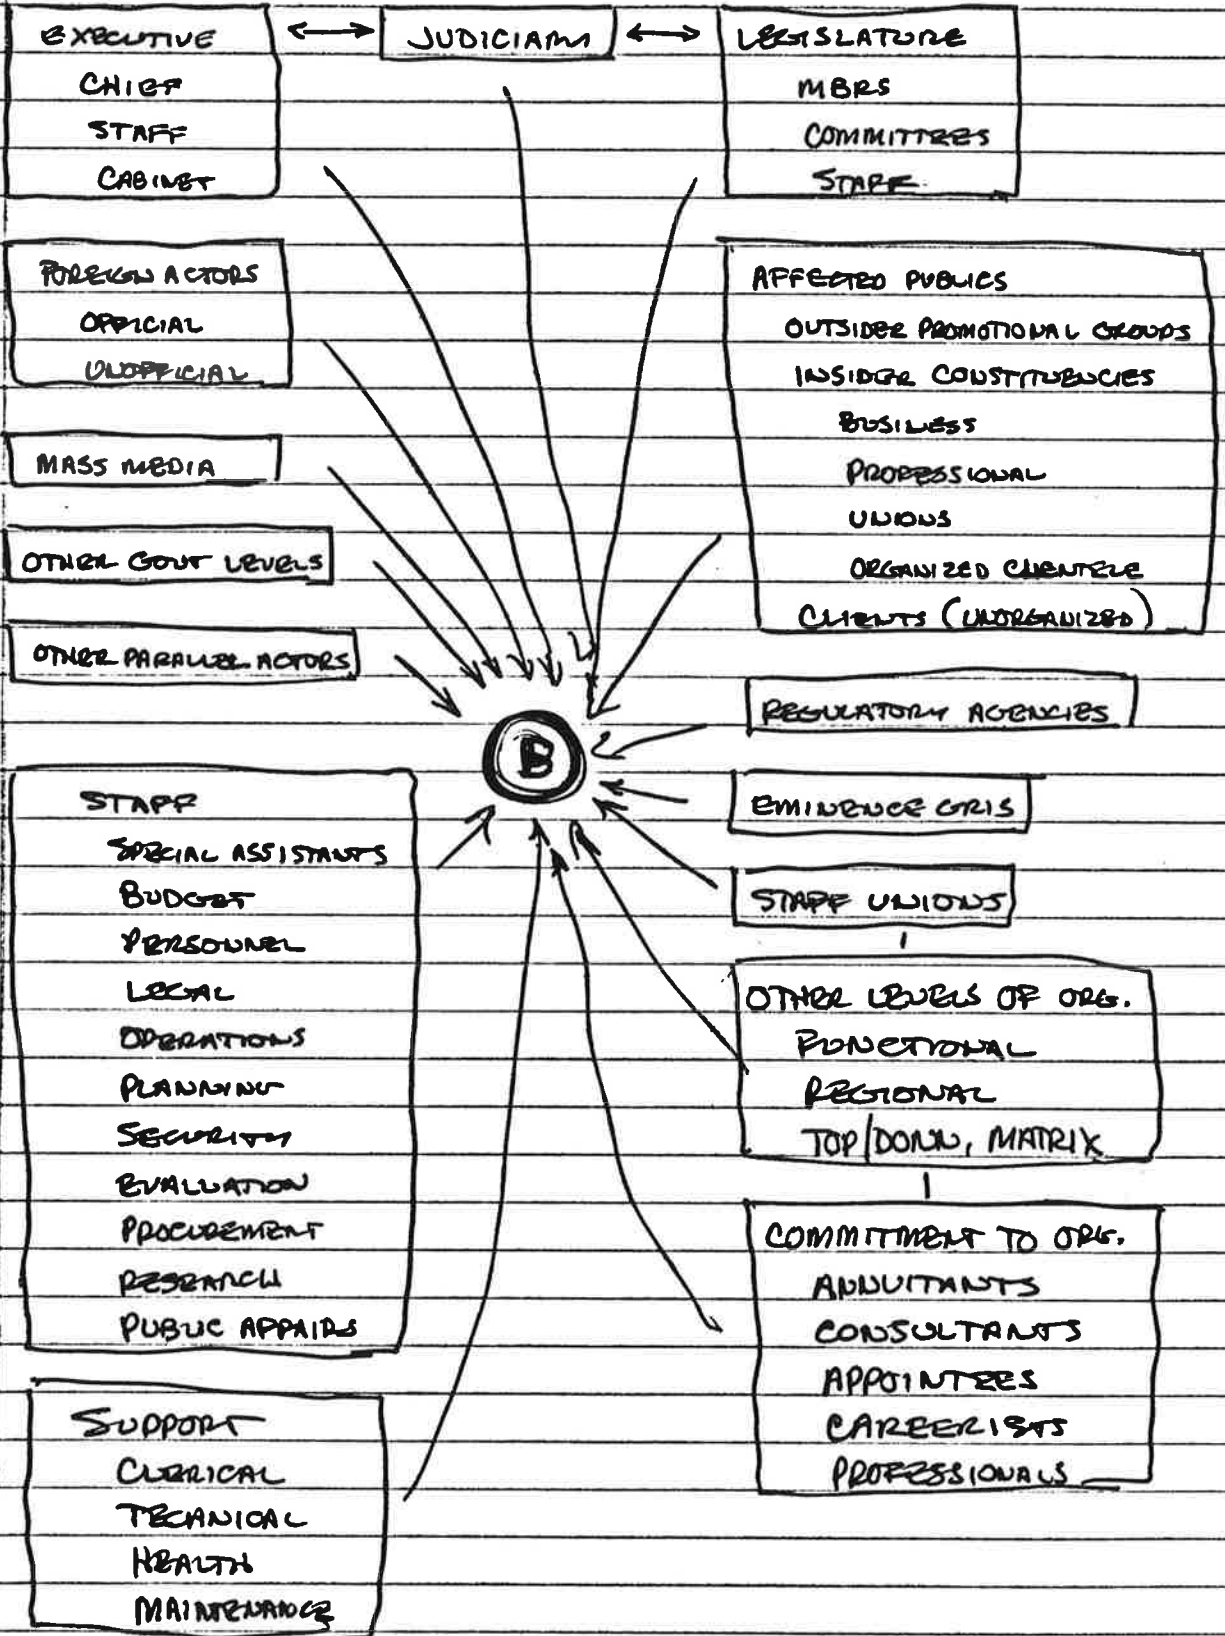 EXECUTIVE
CHIEF
STAFF
CABINET
JUDICIARY
LEGISLATURE
MBRS
COMMITTEES
STAFF
FOREIGN ACTORS
OFFICIAL
UNOFFICIAL
MASS MEDIA
OTHER GOVT LEVELS
OTHER PARALLEL ACTORS
AFFECTED PUBLICS
OUTSIDER PROMOTIONAL GROUPS
INSIDER CONSTITUENCIES
BUSINESS
PROFESSIONAL
UNIONS
ORGANIZED CLIENTELE
CLIENTS (UNORGANIZED)
REGULATORY AGENCIES
EMINENCE GRIS
STAFF UNIONS
OTHER LEVELS OF ORG.
FUNCTIONAL
REGIONAL
TOP/DOWN, MATRIX
COMMITMENT TO ORG.
ANNUITANTS
CONSULTANTS
APPOINTEES
CAREERISTS
PROFESSIONALS
B
STAFF
SPECIAL ASSISTANTS
BUDGET
PERSONNEL
LEGAL
OPERATIONS
PLANNING
SECURITY
EVALUATION
PROCUREMENT
RESEARCH
PUBLIC AFFAIRS
SUPPORT
CLERICAL
TECHNICAL
HEALTH
MAINTENANCE